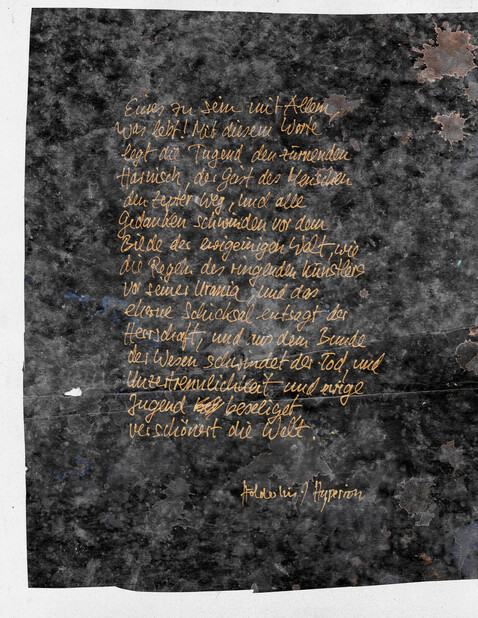 Eines zu sein mit Allem,
was lebt! Mit diesem Worte
legt die Tugend den zürnenden
Harnisch, der Geist des Menschen
den Zepter weg, und alle
Gedanken schwinden vor dem
Bilde der ewigeinigen Welt, wie
die Regeln des ringenden Künstlers
vor seiner Urania, und das
eherne Schicksal entsagt der
Herrschaft, und aus dem Bunde
der Wesen schwindet der Tod, und
Unzertrennlichkeit und ewige
Jugend beseliget
verschönert die Welt.
Hölderlin / Hyperion